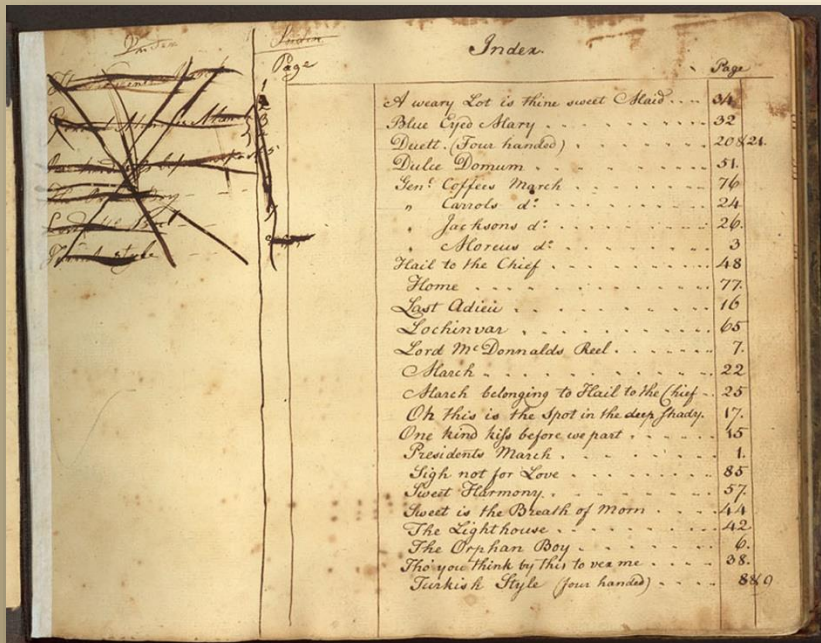 Index
Index
Page
1
2
3
Index
Page
A weary Lot is thine sweet Maid . . . 34
Blue Eyed Mary . . . . . . . . . 32
Duett. (Four handed) . . . . . . . 20 & 21.
Dulce Domum . . . . . . . . . 51.
Genl. Coffees March . . . . . . . 76
" Carrols do. . . . . . . . 24
" Jacksons do. . . . . . . . 26.
" Moreus do. . . . . . . . 3
Hail to the Chief . . . . . . . . 48
Home . . . . . . . . . . . 77.
Last Adieu . . . . . . . . . . 16
Lochinvar . . . . . . . . . . 65
Lord McDonnalds Reel . . . . . . 7.
March . . . . . . . . . . . 22
March belonging to Hail to the Chief . . 25
Oh this is the Spot in the deep shady. 17.
One kind kiss before we part . . . . . 15
Presidents March . . . . . . . . 1.
Sigh not for Love . . . . . . . . 85
Sweet Harmony . . . . . . . . . 57.
Sweet is the Breath of Morn . . . . 44
The Lighthouse . . . . . . . . . 42
The Orphan Boy . . . . . . . . 6.
Tho' you think by this to vex me . . . . 38.
Turkish Style (four handed) . . . . 8 & 9